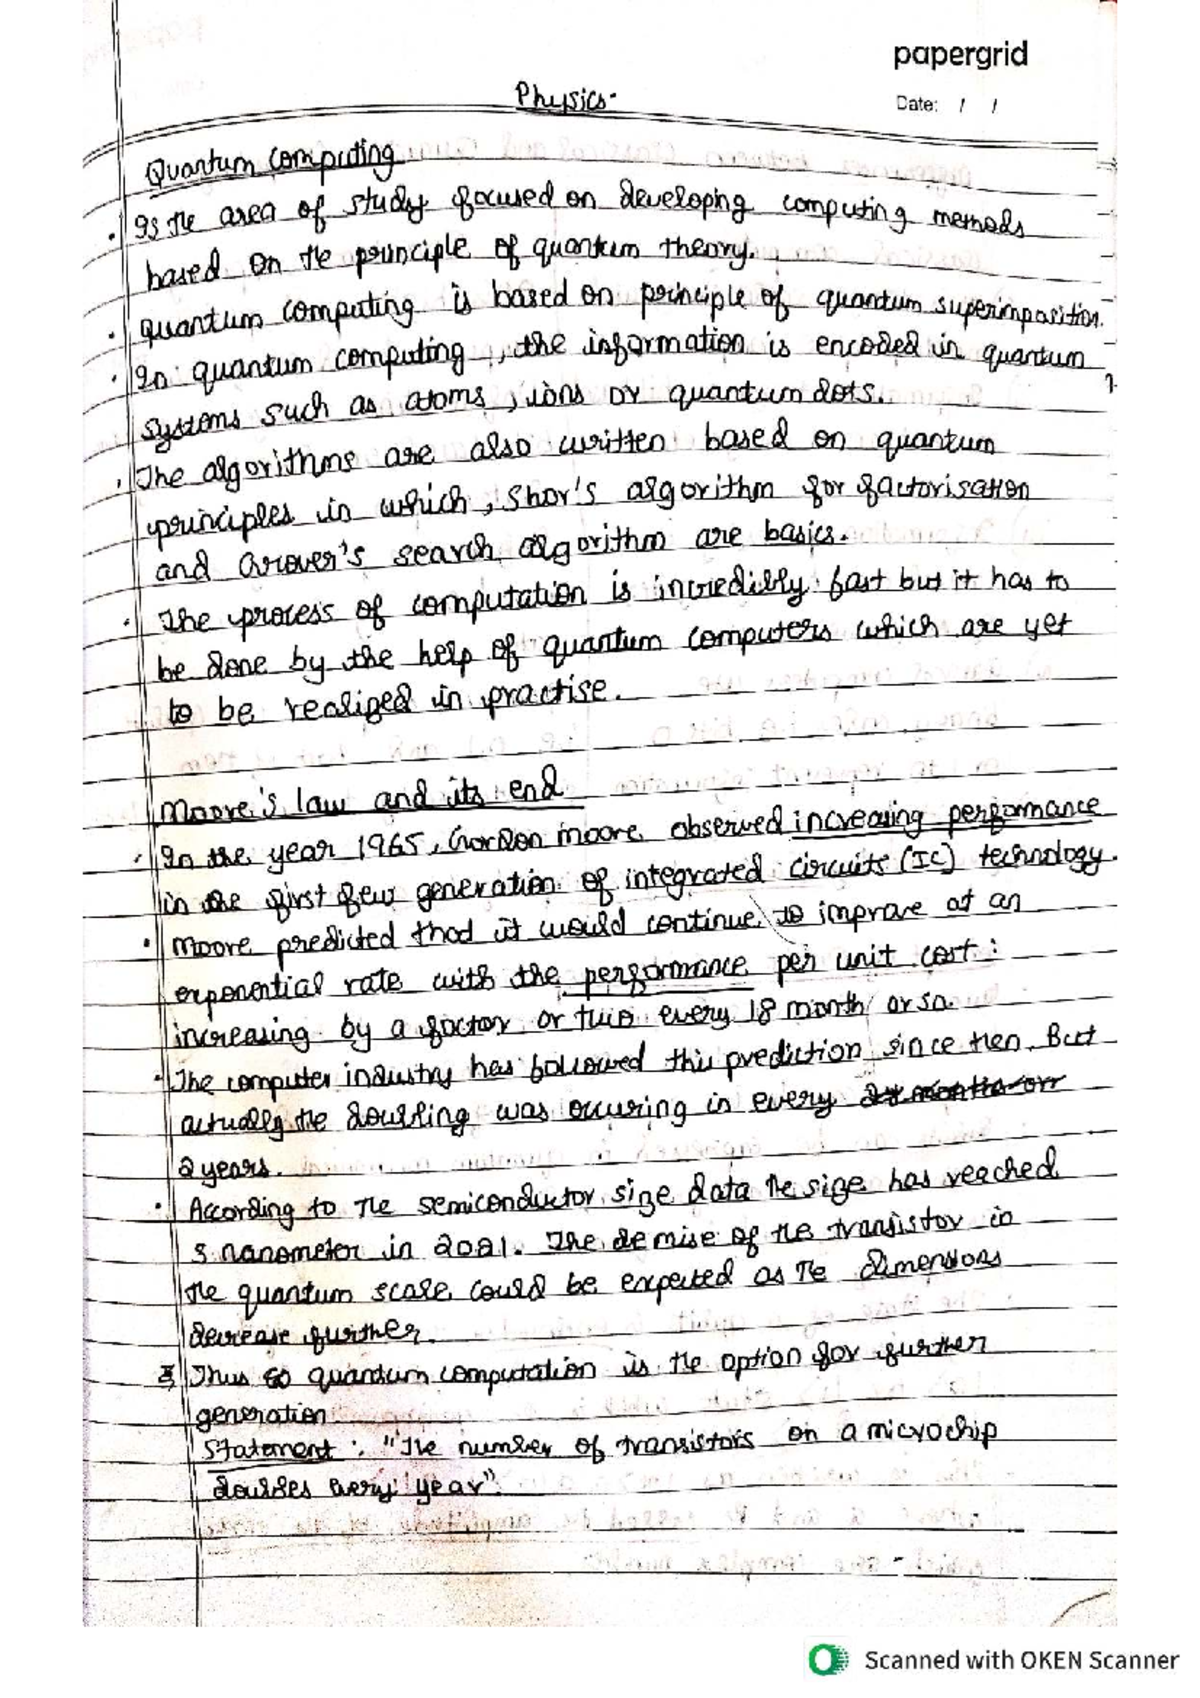 papergrid
Date: / /
Physics
Quantum Computing
• Is the area of study focused on developing computing methods
based on the principle of quantum theory.
• quantum computing is based on principle of quantum superimposition.
• In quantum computing, the information is encoded in quantum
systems such as atoms, ions or quantum dots.
• The algorithms are also written based on quantum
principles in which, Shor's algorithm for factorisation
and Grover's search algorithm are basics.
• The process of computation is incredibly fast but it has to
be done by the help of quantum computers which are yet
to be realized in practise.
Moore's law and its end
• In the year 1965, Gordon moore observed increasing performance
in the first few generation of integrated circuits (IC) technology.
• Moore predicted that it would continue to improve at an
exponential rate with the performance per unit cost
increasing by a factor or two every 18 month or so.
• The computer industry has followed this prediction since then. But
actually the doubling was occuring in every
2 years.
• According to the semiconductor size data the size has reached
5 nanometer in 2021. The demise of the transistor in
the quantum scale could be expected as the dimensions
decrease further.
Thus so quantum computation is the option for further
generation
Statement: "The number of transistors on a microchip
doubles every year".
Scanned with OKEN Scanner